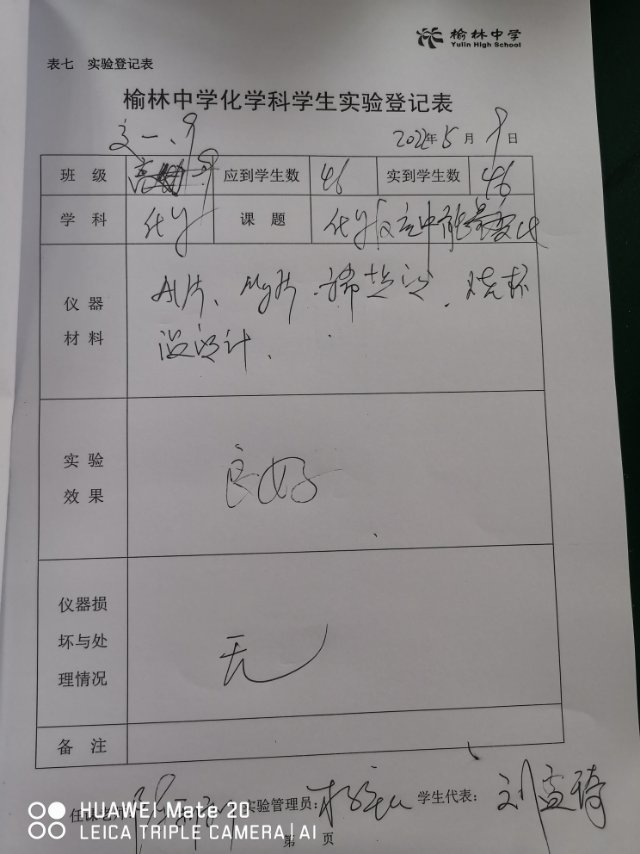 榆林中学
Yulin High School
表七 实验登记表
榆林中学化学科学生实验登记表
2022年5月9日
班 级 应到学生数 46 实到学生数 46
学 科 化学 课 题 化学反应中能量变化
仪 器 Al片、Mg片、稀盐酸、烧杯
材 料 温度计、
实 验
效 果 良好
仪器损
坏与处 无
理情况
备 注
实验管理员: 学生代表: 刘孟琦
第 页
HUAWEI Mate 20
LEICA TRIPLE CAMERA | AI